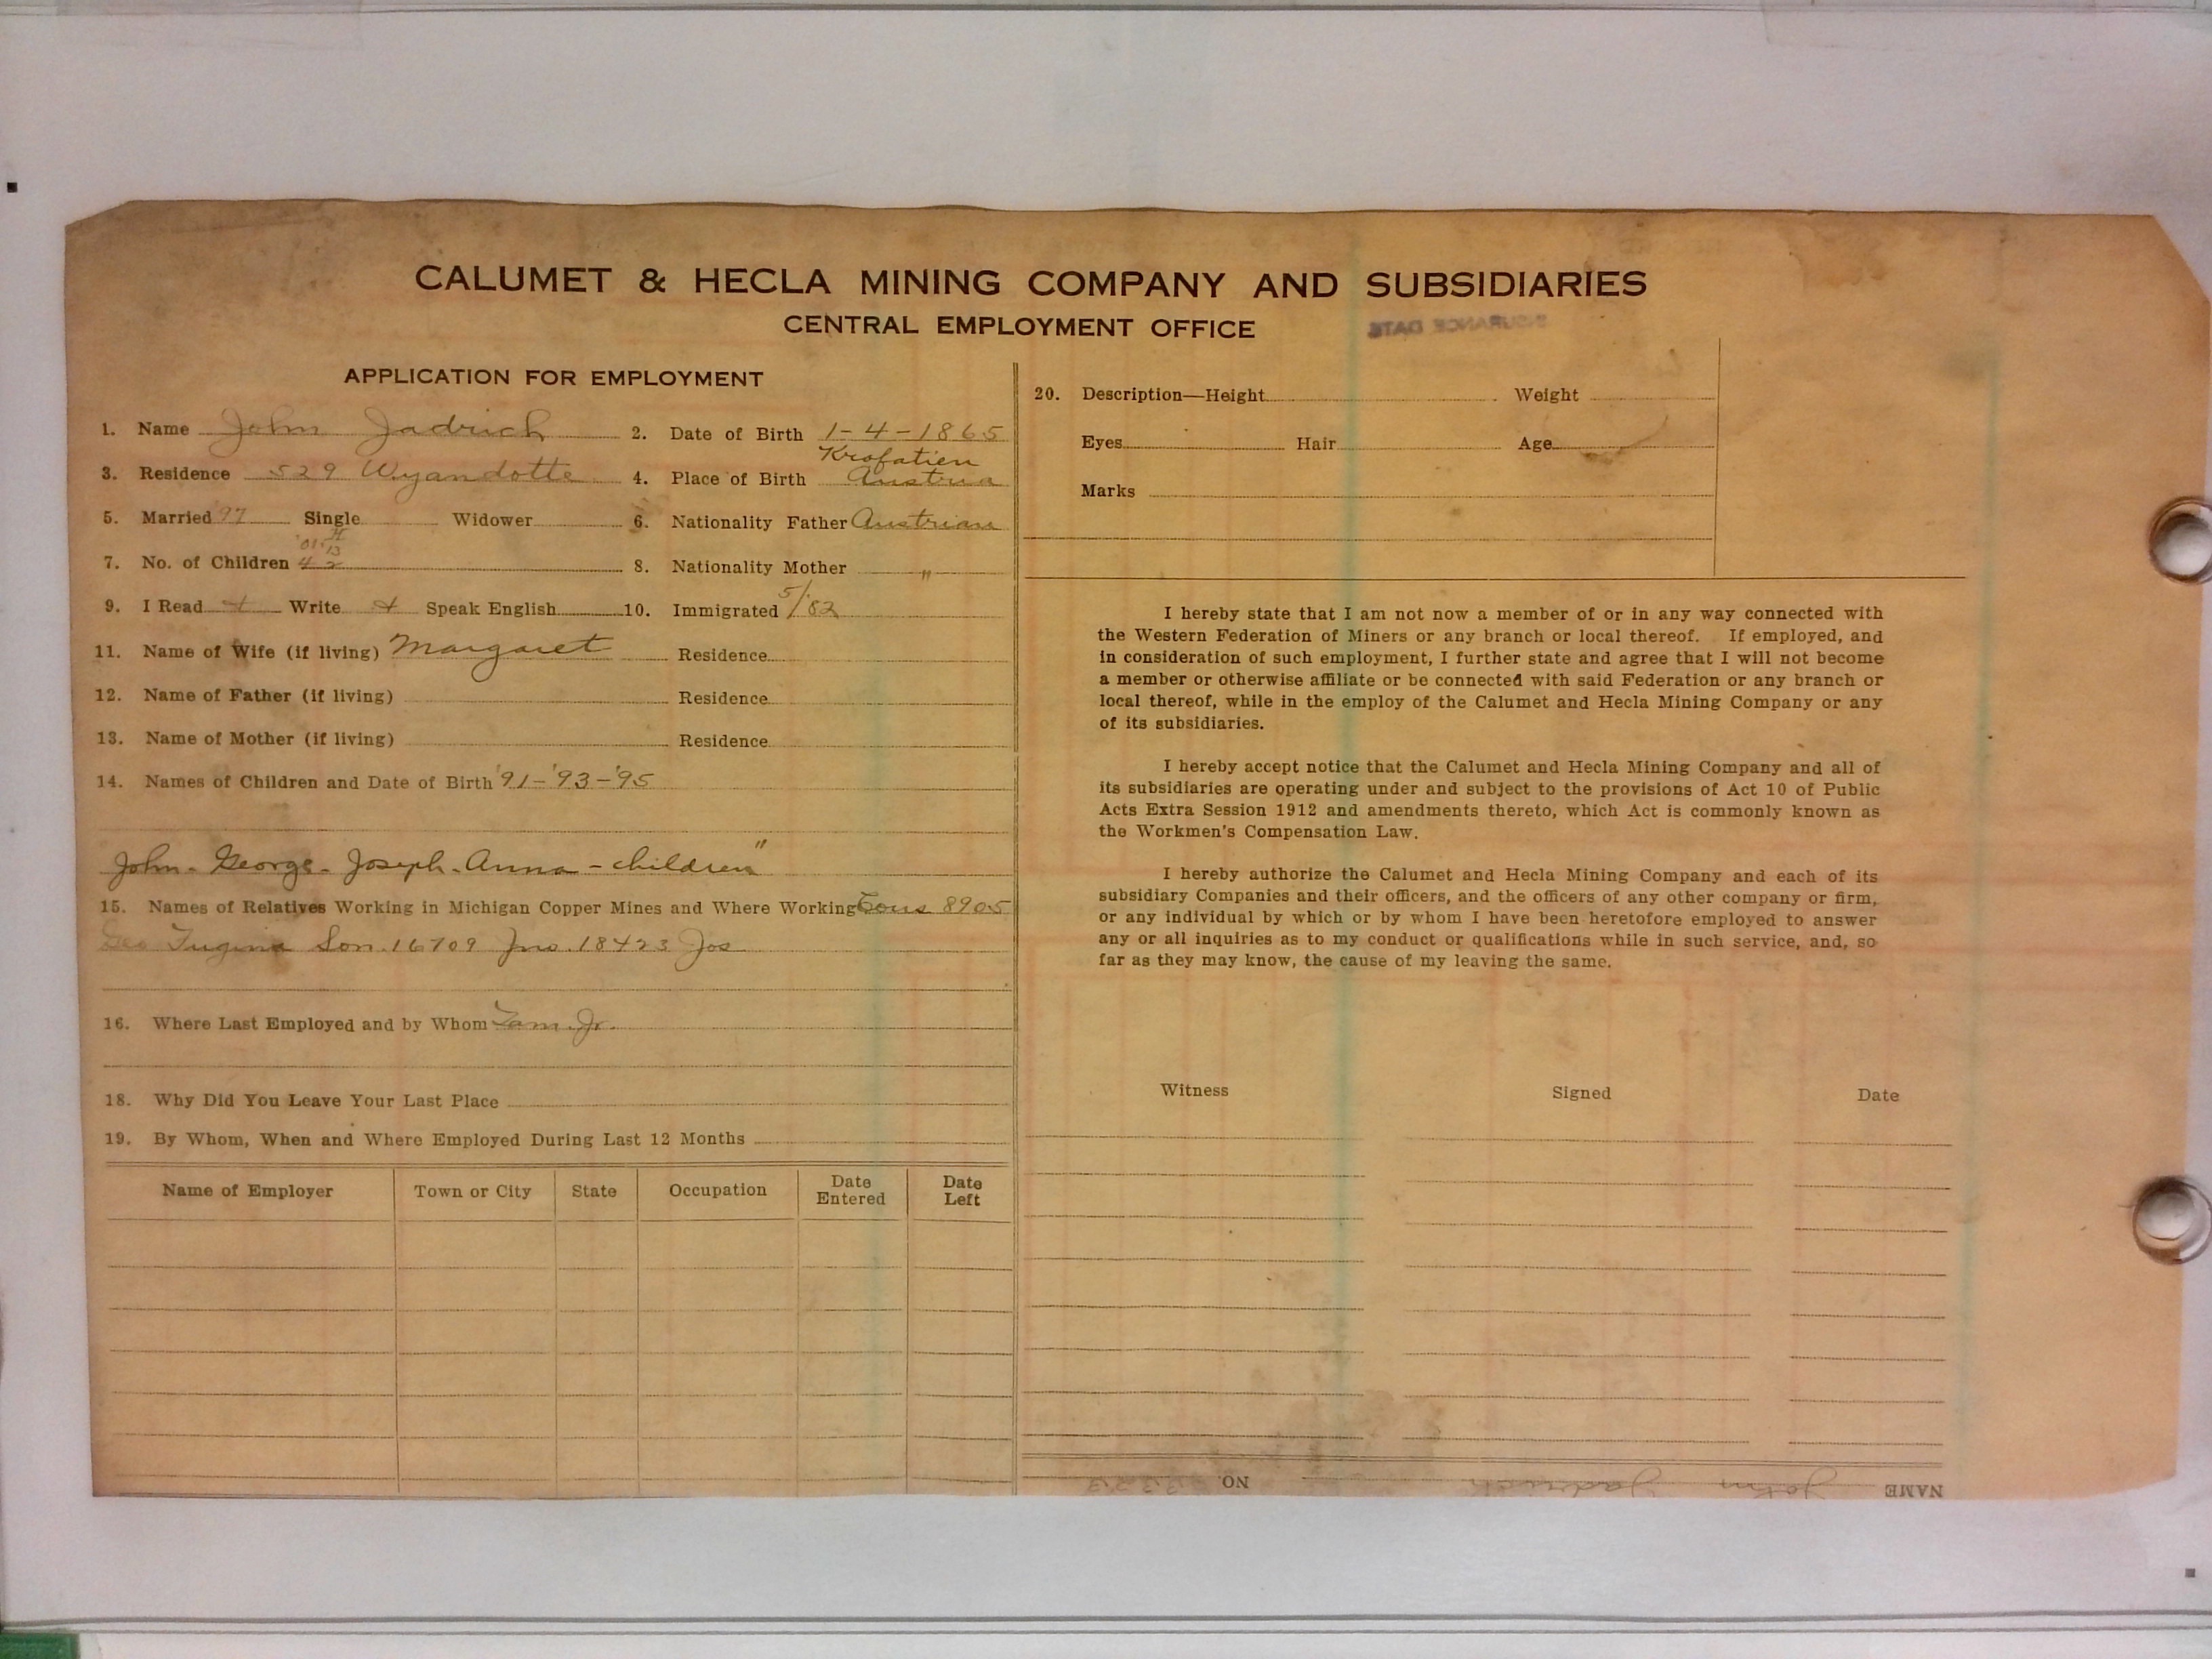 CALUMET & HECLA MINING COMPANY AND SUBSIDIARIES
CENTRAL EMPLOYMENT OFFICE
INSURANCE DATE
APPLICATION FOR EMPLOYMENT
1. Name John Jadrich 2. Date of Birth 1-4-1865
Krofatien
3. Residence 529 Wyandotte 4. Place of Birth Austria
5. Married 97 Single Widower 6. Nationality Father Austrian
'01 13
7. No. of Children 4 2 8. Nationality Mother "
9. I Read Write Speak English 10. Immigrated 5/'82
11. Name of Wife (if living) Margaret Residence
12. Name of Father (if living) Residence
13. Name of Mother (if living) Residence
14. Names of Children and Date of Birth '91-'93-'95
John - George - Joseph - Anna - children"
15. Names of Relatives Working in Michigan Copper Mines and Where Working 8905
Geo Son 16709 Jno. 18423 Jos
16. Where Last Employed and by Whom Tam. Jr.
18. Why Did You Leave Your Last Place
19. By Whom, When and Where Employed During Last 12 Months
Name of Employer Town or City State Occupation Date Entered Date Left
20. Description—Height Weight
Eyes Hair Age
Marks
I hereby state that I am not now a member of or in any way connected with
the Western Federation of Miners or any branch or local thereof. If employed, and
in consideration of such employment, I further state and agree that I will not become
a member or otherwise affiliate or be connected with said Federation or any branch or
local thereof, while in the employ of the Calumet and Hecla Mining Company or any
of its subsidiaries.
I hereby accept notice that the Calumet and Hecla Mining Company and all of
its subsidiaries are operating under and subject to the provisions of Act 10 of Public
Acts Extra Session 1912 and amendments thereto, which Act is commonly known as
the Workmen's Compensation Law.
I hereby authorize the Calumet and Hecla Mining Company and each of its
subsidiary Companies and their officers, and the officers of any other company or firm,
or any individual by which or by whom I have been heretofore employed to answer
any or all inquiries as to my conduct or qualifications while in such service, and, so
far as they may know, the cause of my leaving the same.
Witness Signed Date
NAME John Jadrich NO.